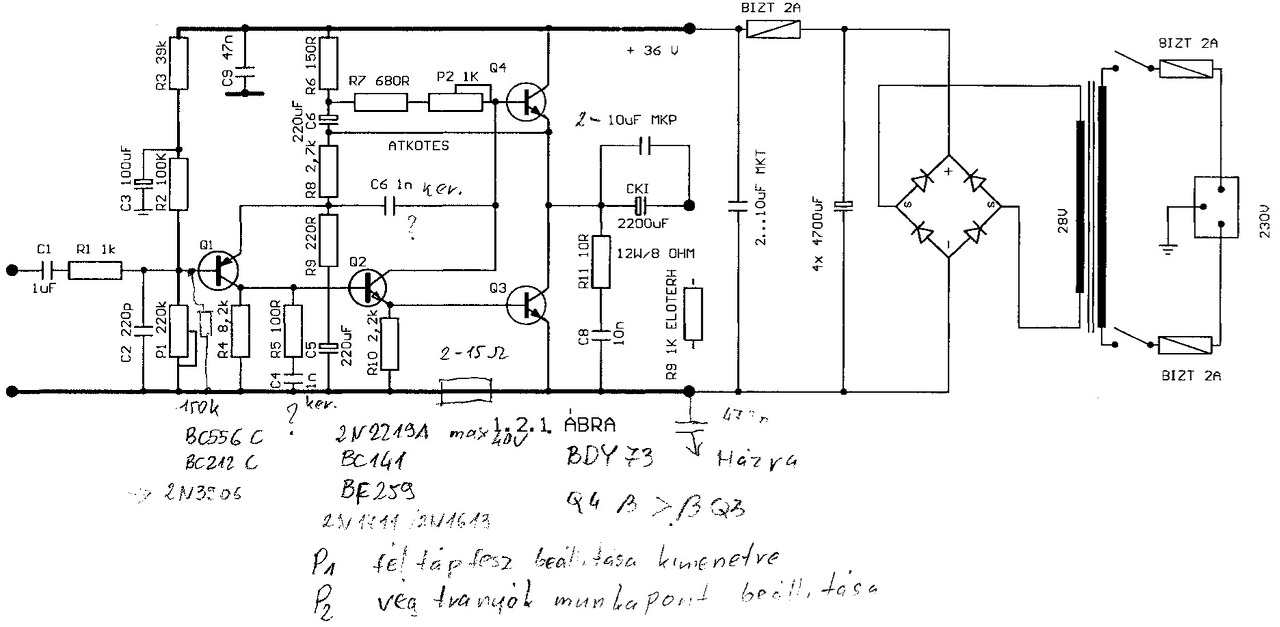 BIZT 2A
BIZT 2A
+ 36 V
R3 39k
C9 47n
R6 150R
R7 680R
P2 1K
Q4
220uF
C6
2- 10uF MKP
ATKOTES
C3 100uF
R2 100K
R8 2,7k
C6 1n ker.
?
CKI
2200uF
2...10uF MKT
4x 4700uF
+
S
S
-
28V
230V
C1
1uF
R1 1k
Q1
R9 220R
Q2
Q3
R11 10R
12W/8 OHM
C2 220p
P1 220k
R4 8,2k
R5 100R
C5
220uF
R10 2,2k
2-15Ω
C8
10n
R9 1K ELOTERH
BIZT 2A
C4
1n
ker.
?
150k
1.2.1. ÁBRA
BC556 C
2N2219A max 40V
BDY 73
Házra
BC212 C
BC141
2N3906
BF259
Q4 β > β Q3
P1 féltápfesz beállítása kimenetre
P2 vég tranyók munkapont beállítása